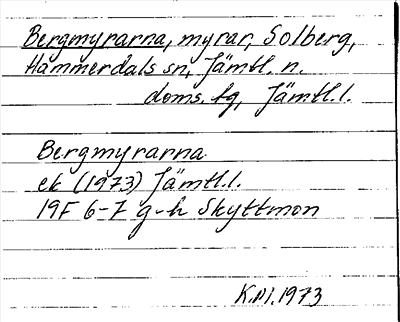 Bergmyrarna, myrar, Solberg,
Hammerdals sn, Jämtl. n.
doms. tg, Jämtl.l.
Bergmyrarna
ek (1973) Jämtl.l.
19F 6-7 g-h Skyttmon
K.M. 1973